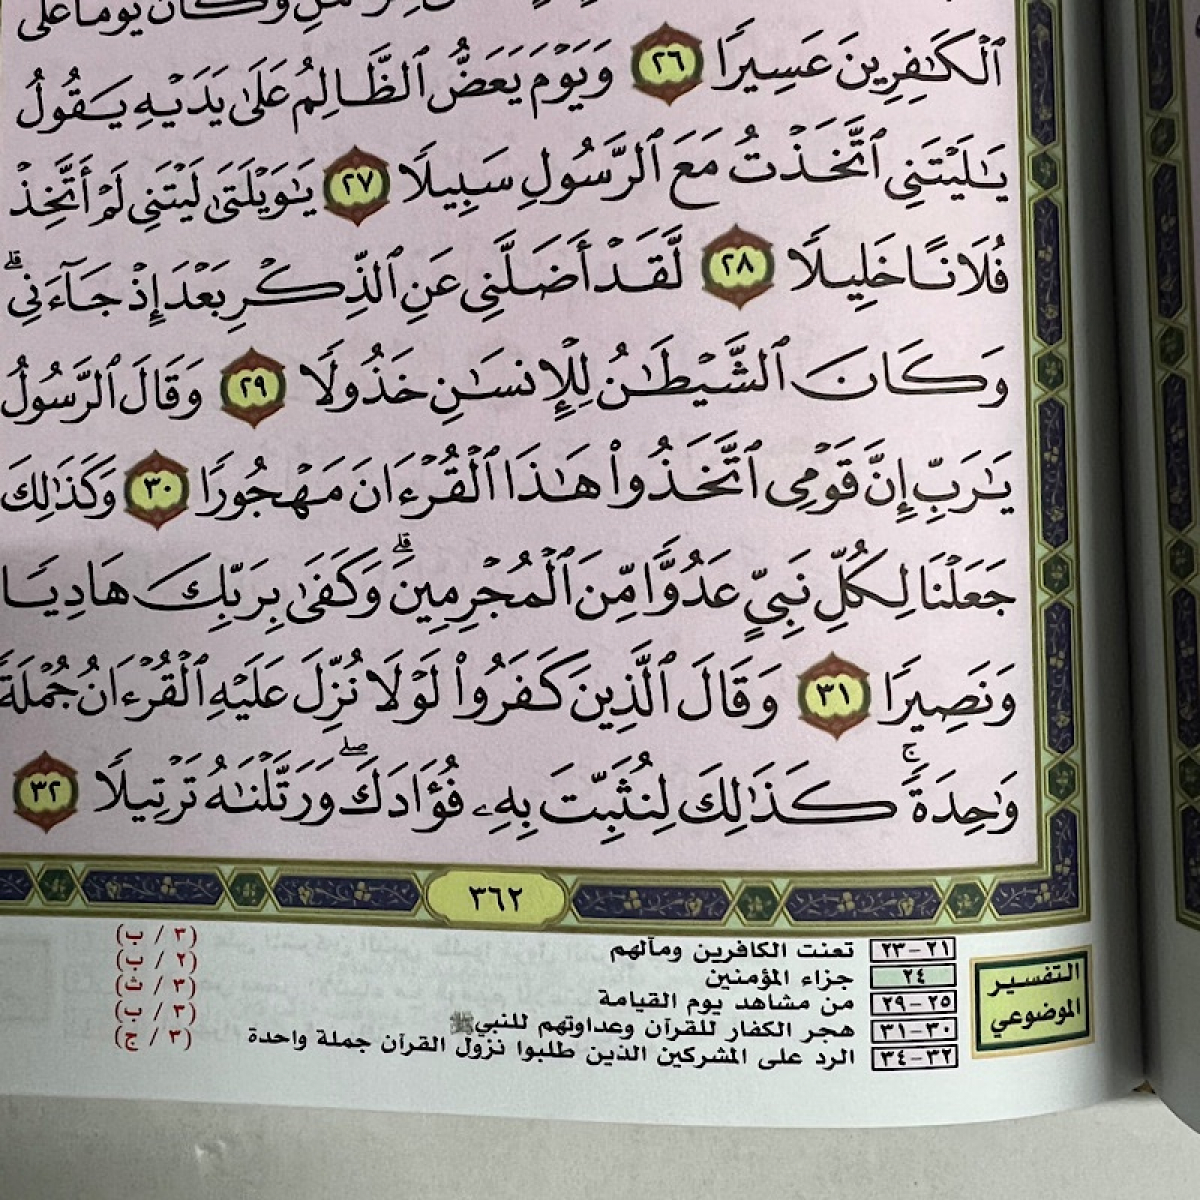 وَكَانَ يَوْمًا عَلَى
ٱلْكَٰفِرِينَ عَسِيرًا ٢٦ وَيَوْمَ يَعَضُّ ٱلظَّالِمُ عَلَىٰ يَدَيْهِ يَقُولُ
يَٰلَيْتَنِى ٱتَّخَذْتُ مَعَ ٱلرَّسُولِ سَبِيلًا ٢٧ يَٰوَيْلَتَىٰ لَيْتَنِى لَمْ أَتَّخِذْ
فُلَانًا خَلِيلًا ٢٨ لَّقَدْ أَضَلَّنِى عَنِ ٱلذِّكْرِ بَعْدَ إِذْ جَآءَنِى ۗ
وَكَانَ ٱلشَّيْطَٰنُ لِلْإِنسَٰنِ خَذُولًا ٢٩ وَقَالَ ٱلرَّسُولُ
يَٰرَبِّ إِنَّ قَوْمِى ٱتَّخَذُوا۟ هَٰذَا ٱلْقُرْءَانَ مَهْجُورًا ٣٠ وَكَذَٰلِكَ
جَعَلْنَا لِكُلِّ نَبِىٍّ عَدُوًّا مِّنَ ٱلْمُجْرِمِينَ ۗ وَكَفَىٰ بِرَبِّكَ هَادِيًا
وَنَصِيرًا ٣١ وَقَالَ ٱلَّذِينَ كَفَرُوا۟ لَوْلَا نُزِّلَ عَلَيْهِ ٱلْقُرْءَانُ جُمْلَةً
وَٰحِدَةً ۚ كَذَٰلِكَ لِنُثَبِّتَ بِهِۦ فُؤَادَكَ ۖ وَرَتَّلْنَٰهُ تَرْتِيلًا ٣٢
٣٦٢
التفسير الموضوعي
٢١-٢٣ تعنت الكافرين ومآلهم (٣ / ب)
٢٤ جزاء المؤمنين (٢ / ب)
٢٥-٢٩ من مشاهد يوم القيامة (٣ / ث)
٣٠-٣١ هجر الكفار للقرآن وعداوتهم للنبي ﷺ (٣ / ب)
٣٢-٣٤ الرد على المشركين الذين طلبوا نزول القرآن جملة واحدة (٣ / ج)